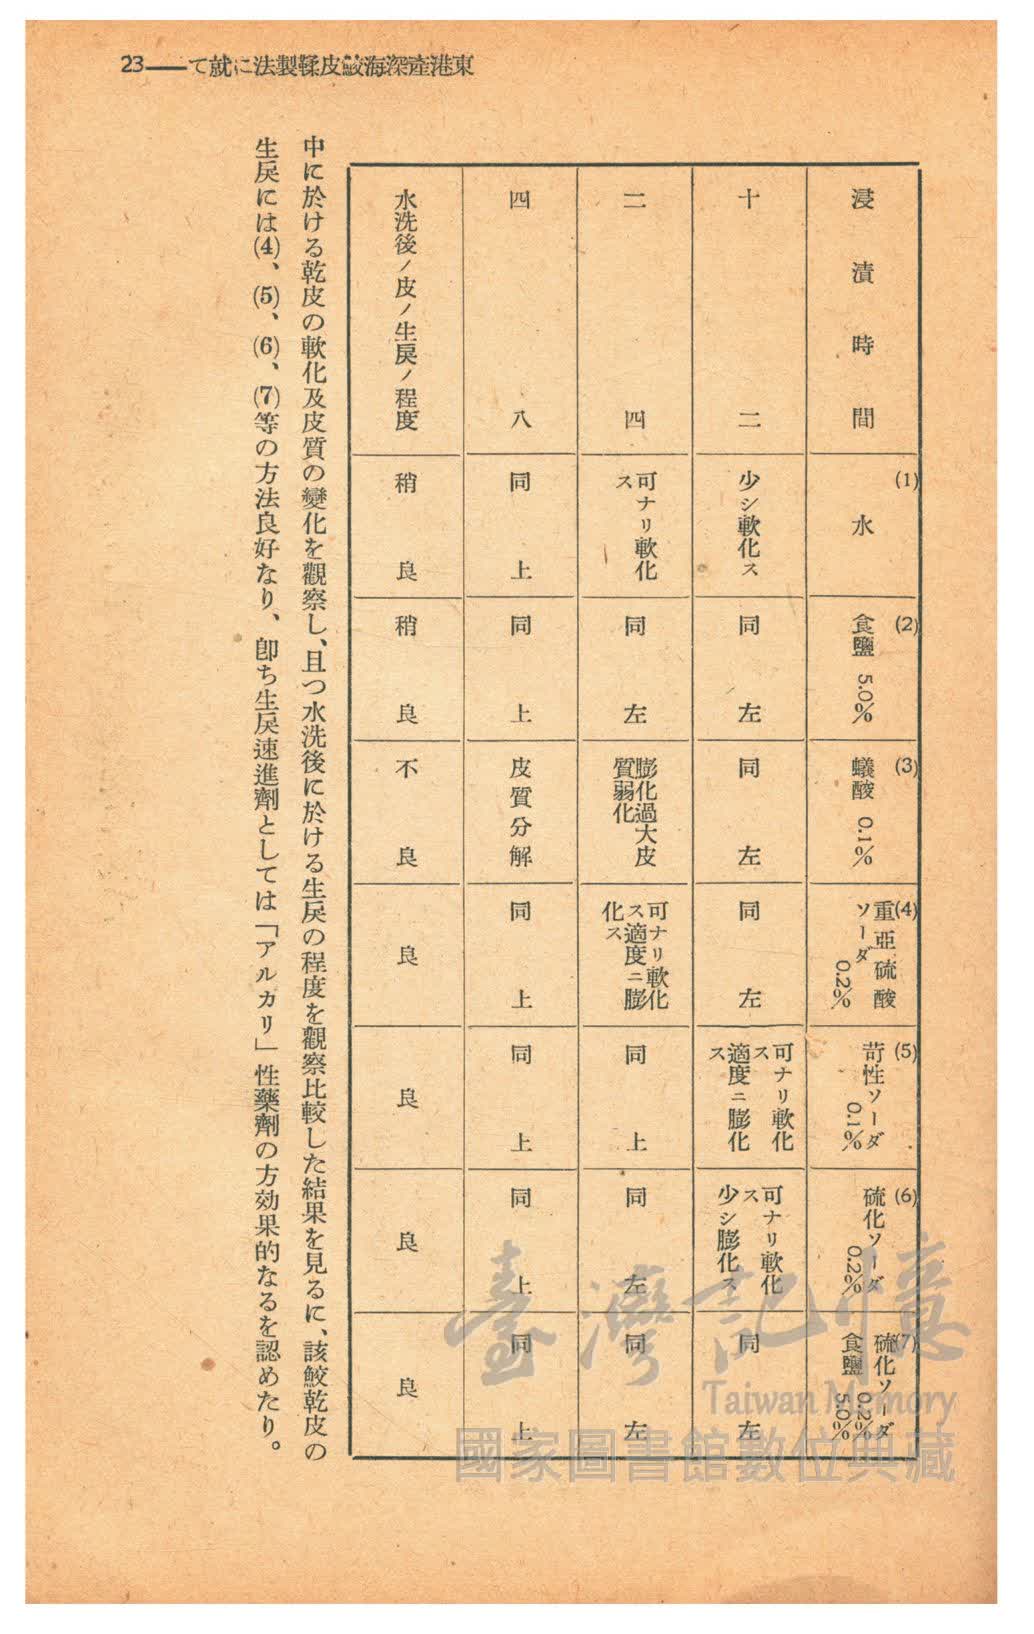 東港產深海鮫皮鞣製法に就て——23
浸漬時間
(1)
水
(2)
食鹽 5.0%
(3)
蟻酸 0.1%
(4)
重亞硫酸
ソーダ
0.2%
(5)
苛性ソーダ
0.1%
(6)
硫化ソーダ
0.2%
(7)
硫化ソーダ
0.2%
食鹽 5.0%
十二
少シ軟化ス
同左
同左
同左
可ナリ軟化
ス
適度ニ膨化
ス
可ナリ軟化
ス
少シ膨化ス
同左
二四
可ナリ軟化
ス
同左
膨化過大皮
質弱化
可ナリ軟化
ス適度ニ膨
化ス
同上
同左
同左
四八
同上
同上
皮質分解
同上
同上
同上
同上
水洗後ノ皮ノ生戻ノ程度
稍良
稍良
不良
良
良
良
良
中に於ける乾皮の軟化及皮質の變化を觀察し、且つ水洗後に於ける生戻の程度を觀察比較した結果を見るに、該鮫乾皮の
生戻には(4)、(5)、(6)、(7)等の方法良好なり、卽ち生戻速進劑としては「アルカリ」性藥劑の方効果的なるを認めたり。
臺灣記憶
Taiwan Memory
國家圖書館數位典藏